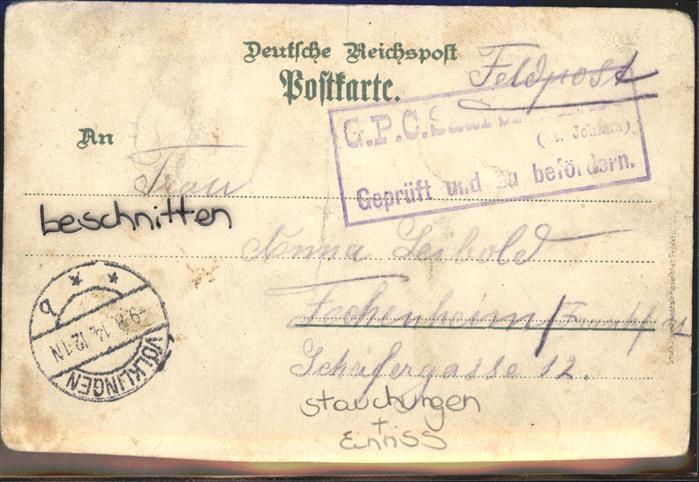 Deutsche Reichspost
Postkarte.
Feldpost
An
G.P.C.
Geprüft und zu befördern.
Frau
beschnitten
Anna Seibold
Fechenheim/Frankf
Schäfergasse 12.
b * *
-9.8.14.12-1N
VÖLKLINGEN
stauchungen
+
Einriss